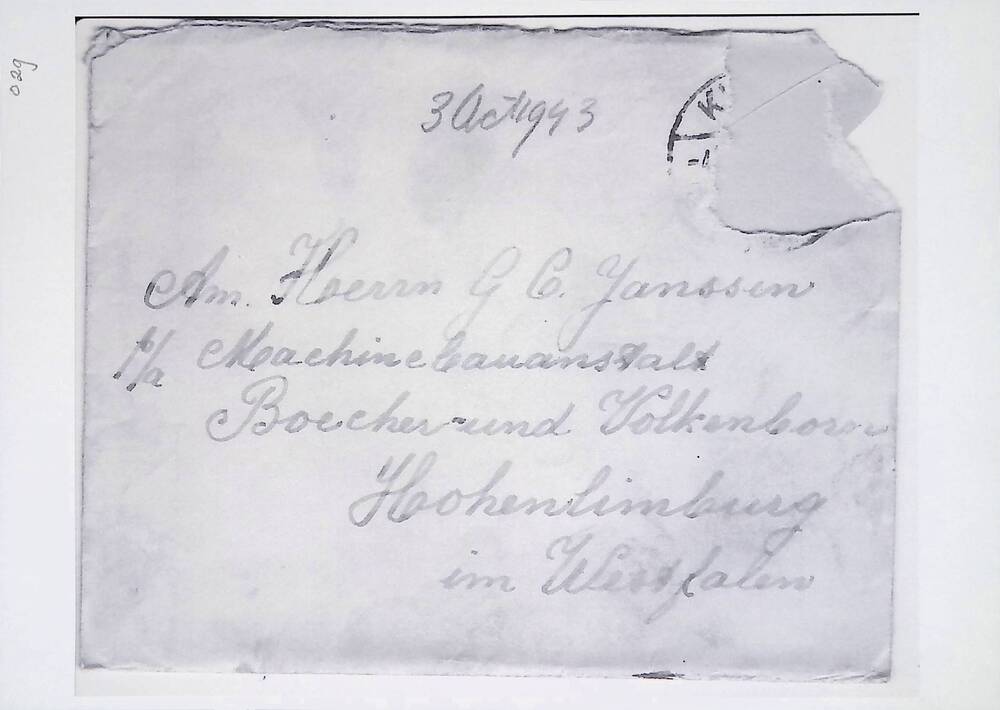 029
3 Oct 1943
K
Am. Hoerrn G C. Janssen
p/a Machinebauanstalt
Boecher und Volkenborn
Hohenlimburg
im Westfalen